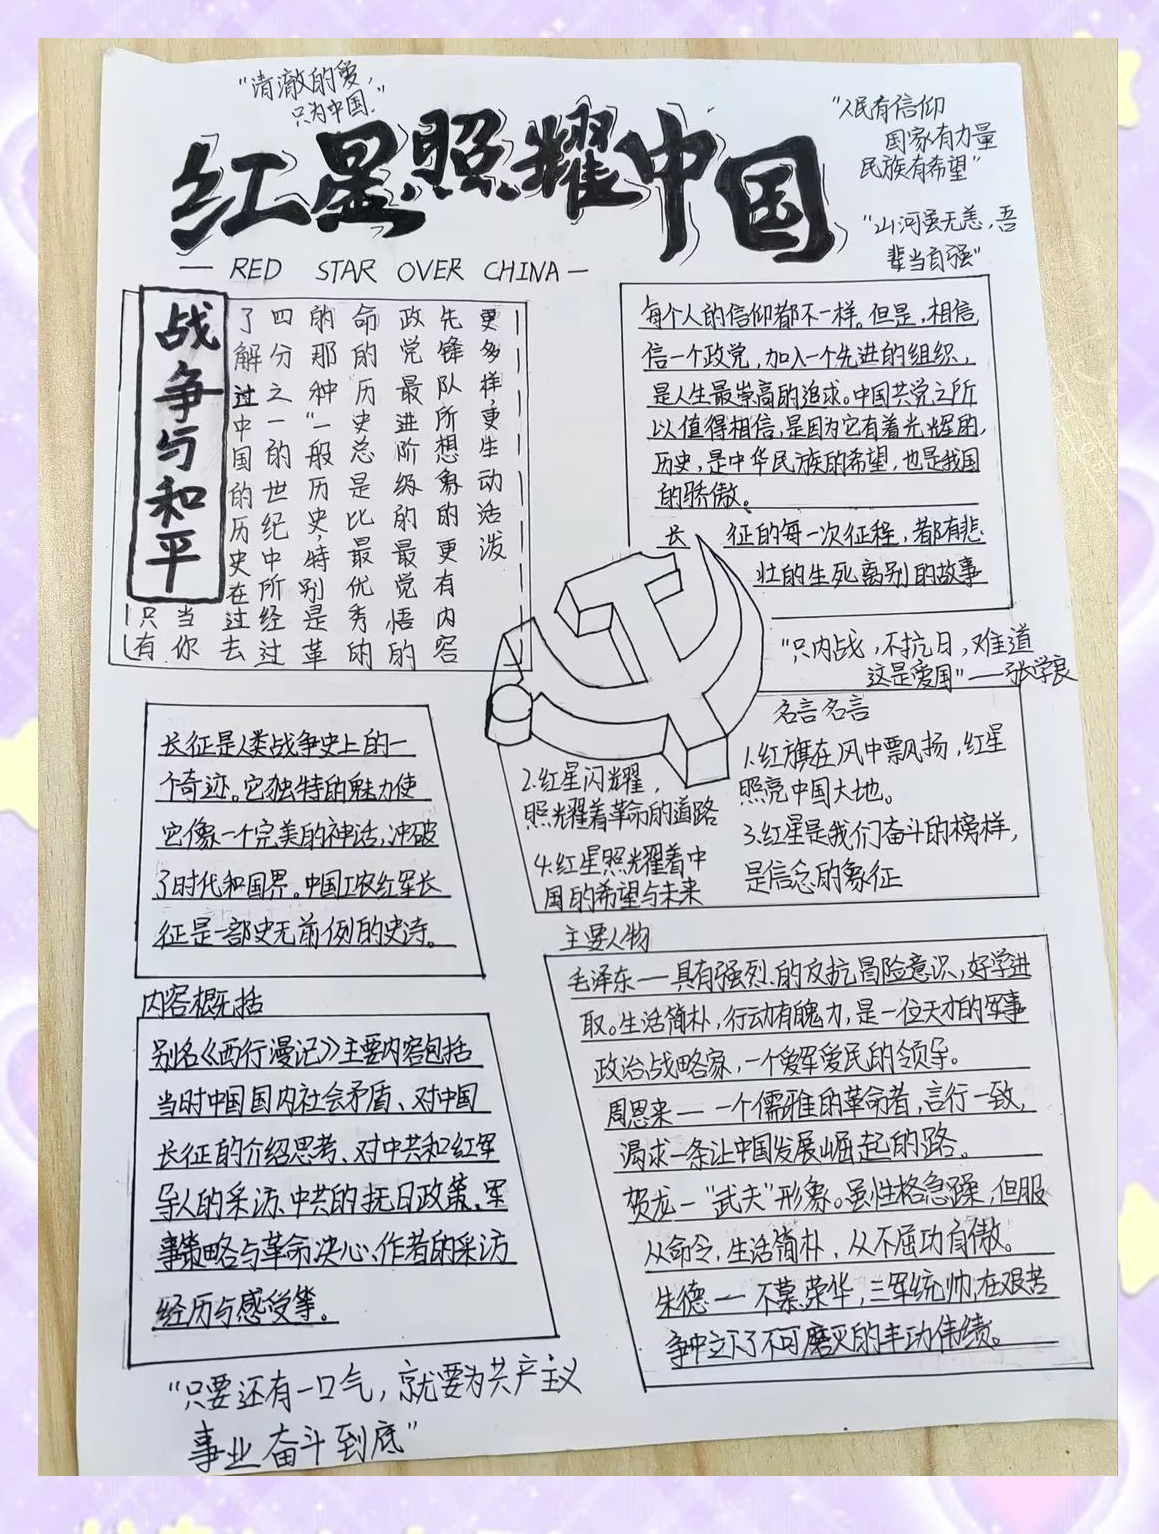 "清澈的爱，
只为中国."
红星照耀中国
"人民有信仰
国家有力量
民族有希望"
"山河虽无恙，吾
辈当自强"
— RED STAR OVER CHINA —
战争与和平
只有
当你
了解过中国的历史在过去
四分之一的世纪中所经过
的那种"一般历史，特别是革
命的历史总是比最优秀的
政党最进阶级的最觉悟的
先锋队所想象的更有内容
更多样，更生动活泼
每个人的信仰都不一样。但是，相信，
信一个政党，加入一个先进的组织，
是人生最崇高的追求。中国共党之所
以值得相信，是因为它有着光辉的，
历史，是中华民族的希望，也是我国
的骄傲。
长征的每一次征程，都有悲
壮的生死离别的故事
"只内战，不抗日，难道
这是爱国"——张学良
名言名言
1.红旗在风中飘扬，红星
照亮中国大地。
2.红星闪耀，
照耀着革命的道路
3.红星是我们奋斗的榜样，
是信念的象征
4.红星照耀着中
国的希望与未来
长征是人类战争史上的一
个奇迹。它独特的魅力使
它像一个完美的神话，冲破
了时代和国界。中国工农红军长
征是一部史无前例的史诗。
内容概括
别名《西行漫记》主要内容包括
当时中国国内社会矛盾、对中国
长征的介绍思考、对中共和红军
导人的采访、中共的抗日政策，军
事策略与革命决心、作者的采访
经历与感受等。
主要人物
毛泽东——具有强烈的反抗冒险意识，好学进
取。生活简朴，行动有魄力，是一位天才的军事
政治战略家，一个爱军爱民的领导。
周恩来——一个儒雅的革命者，言行一致，
渴求一条让中国发展崛起的路。
贺龙—"武夫"形象。虽性格急躁，但服
从命令，生活简朴，从不居功自傲。
朱德——不慕荣华，三军统帅，在艰苦
争中立下了不可磨灭的丰功伟绩。
"只要还有一口气，就要为共产主义
事业奋斗到底"